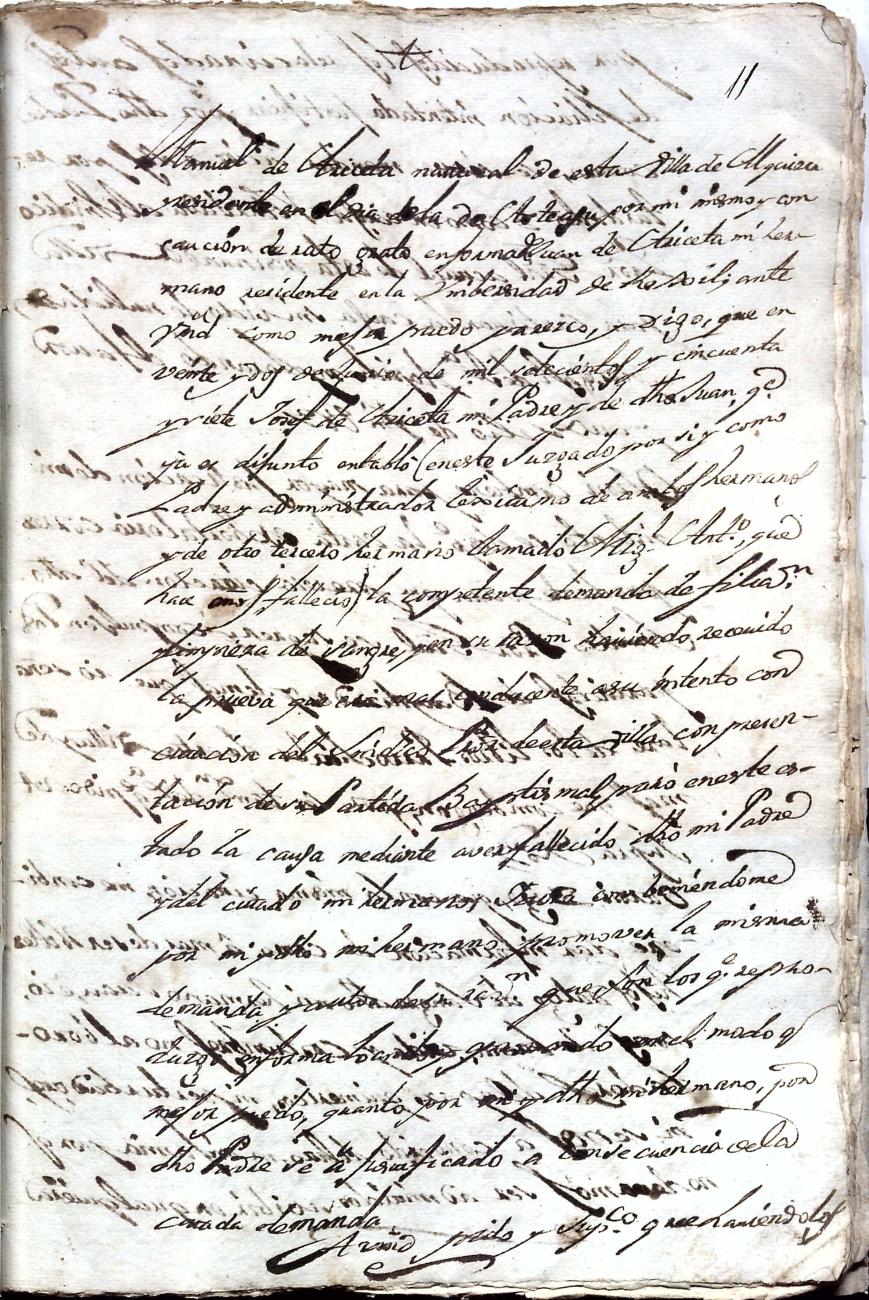 11
Manuel de Ariceta natural de esta Villa de
residente en el dia de la de Arteaga, por mi mismo y con
caución de rato grato en forma Juan de Ariceta mi her-
mano residente en la de ante
Vmd como mejor puedo parezco, y Digo, que en
veinte y dos de Junio de mil setecientos y cincuenta
y siete Josef de Ariceta mi Padre y de dho Juan, q.e
ya es difunto entabló (en este Juzgado por si y como
Padre y administrador lexitimo de ambos hermanos
y de otro tercero hermano llamado Ant.o, que
hace años fallecio) la competente demanda de filia.n
y limpieza de sangre, y en su razon haviendo recevido
la prueba que conducente a su intento con
citación del Sindico de esta Villa con presen-
tación de su Partida Baptismal, paró en este es-
tado la causa mediante aver fallecido dho mi Padre
y del citado mi hermano, y combeniéndome
por mi y dho mi hermano, promover la misma
demanda y que son los q.e repro-
duzgo en forma en el modo q
mejor puedo, quanto por mi y dho mi hermano, por
dho Padre se a justificado a consecuencia de la
citada demanda,
A Vmd pido y Sup.co que haviendolos